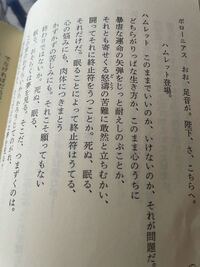 ポローニアス おお、足音が。陛下、さ、こちらへ。
ハムレット登場。
ハムレット このままでいいのか、いけないのか、それが問題だ。
どちらがりっぱな生き方か、このまま心のうちに
暴虐な運命の矢弾をじっと耐えしのぶことか、
それとも寄せくる怒濤の苦難に敢然と立ちむかい、
闘ってそれに終止符をうつことか。死ぬ、眠る、
それだけだ。眠ることによって終止符はうてる、
心の悩みにも、肉体につきまとう
かずかずの苦しみにも。それこそ願ってもない
終わりではないか。死ぬ、眠る、
夢を見る。そこだ、つまずくのは。